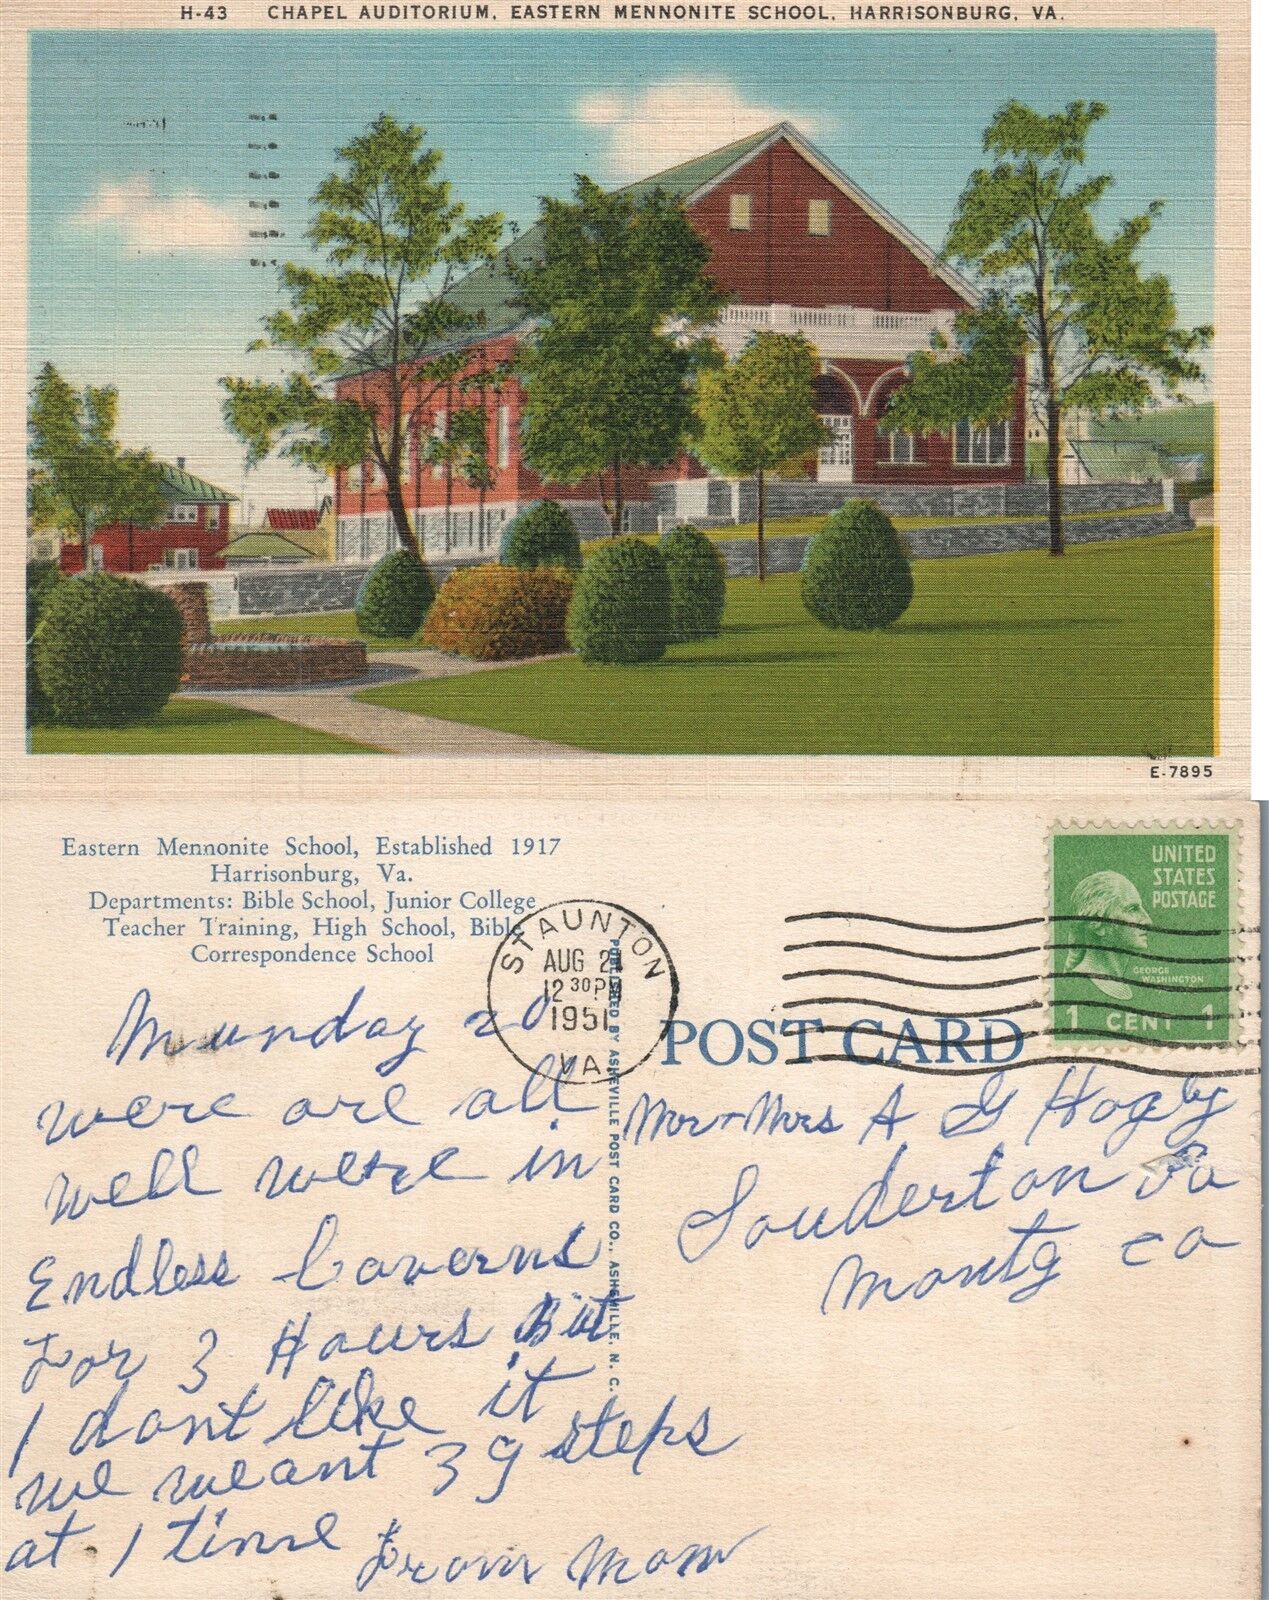 H-43 CHAPEL AUDITORIUM, EASTERN MENNONITE SCHOOL, HARRISONBURG, VA.
E-7895
Eastern Mennonite School, Established 1917
Harrisonburg, Va.
Departments: Bible School, Junior College
Teacher Training, High School, Bible
Correspondence School
STAUNTON
AUG 21
12 30 PM
1951
VA.
UNITED
STATES
POSTAGE
GEORGE
WASHINGTON
1 CENT 1
POST CARD
PUBLISHED BY ASHEVILLE POST CARD CO., ASHEVILLE, N. C.
Munday 20
were are all
well were in
Endless Caverns
For 3 Hours But
I dont like it
we weant 39 steps
at 1 time
From Mom
Mr + Mrs A G
Souderton Pa
Montg co